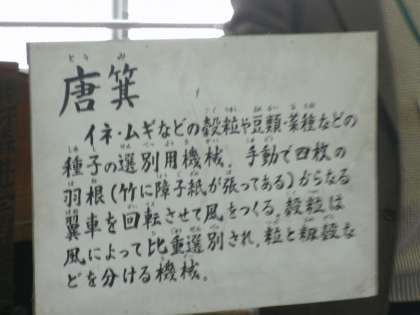 唐箕
イネ・ムギなどの穀粒や豆類・菜種などの
種子の選別用機械。手動で四枚の
羽根(竹に障子紙が張ってある)からなる
翼車を回転させて風をつくる。穀粒は
風によって比重選別され、粒と籾殻な
どを分ける機械。